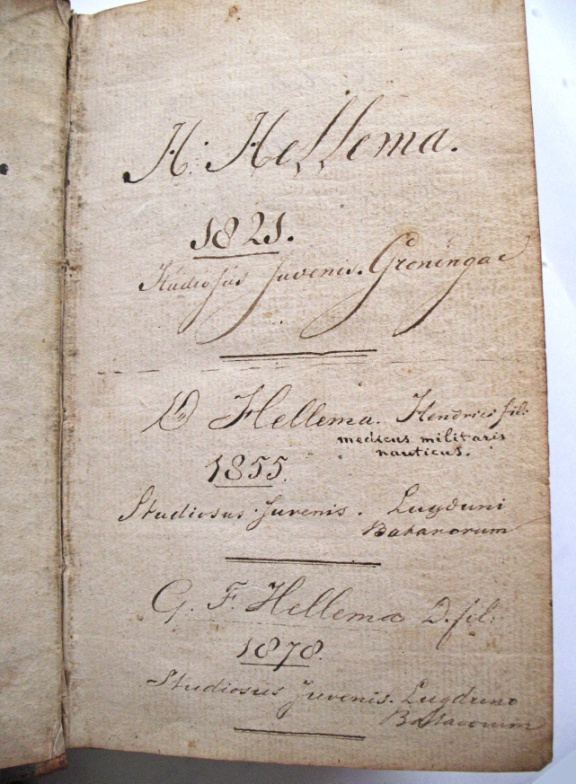 H. Hellema.
1821.
Studiosus Juvenis. Groningae
D Hellema. Henrici fil:
medicus militaris
nauticus.
1855.
Studiosus Juvenis. Lugduni
Batavorum
G. F. Hellema D. fil:
1878.
Studiosus Juvenis. Lugduno
Batavorum